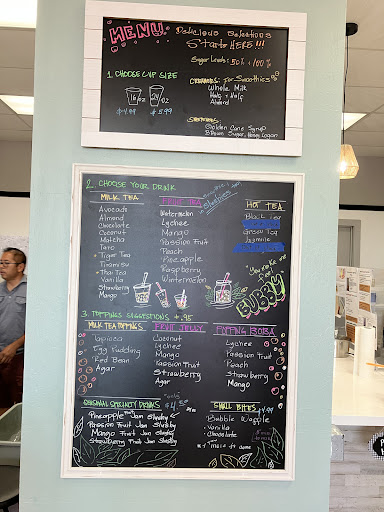 MENU
Delicious Selections
Starts HERE!!!
Sugar Levels: 50% + 100%
1. CHOOSE CUP SIZE
16 oz
24 oz
$4.99
$5.99
CREAMERS: for Smoothies
Whole Milk
Half + Half
Almond
Golden Cane Syrup
Brown Sugar, Honey, Lagon
2. CHOOSE YOUR DRINK
MILK TEA
Avocado
Almond
Chocolate
Coconut
Matcha
Taro
Tiger Tea
Tiramisu
Thai Tea
Vanilla
Strawberry
Mango
FRUIT TEA
Watermelon
Lychee
Mango
Passion Fruit
Peach
Pineapple
Raspberry
Wintermelon
HOT TEA
Black Tea
Green Tea
Jasmine
You make me
feel
BUBBly
3. TOPPINGS SUGGESTIONS + .95
MILK TEA TOPPINGS
Tapioca
Egg Pudding
Red Bean
Agar
FRUIT JELLY
Coconut
Lychee
Mango
Passion Fruit
Strawberry
Agar
POPPING BOBA
Lychee
Passion Fruit
Peach
Strawberry
Mango
ORIGINAL SPECIALTY DRINKS
Pineapple Jam Slushy
Passion Fruit Jam Slushy
Mango Fruit Jam Slushy
Strawberry Fruit Jam Slushy
SMALL BITES
Bubble Waffle
• Vanilla
• Chocolate